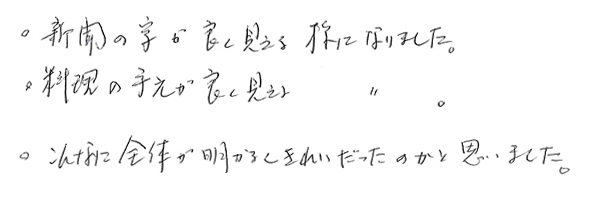 。新聞の字が良く見える様になりました。
。料理の手元が良く見える 〃 。
。こんなに全体が明かるくきれいだったのかと思いました。